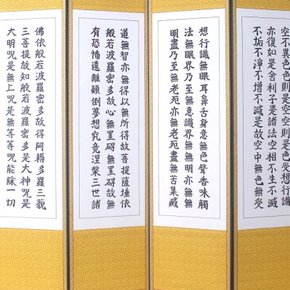 空不異色色則是空空則是色受想行識
亦復如是舍利子是諸法空相不生不滅
不垢不淨不增不減是故空中無色無受
想行識無眼耳鼻舌身意無色聲香味觸
法無眼界乃至無意識界無無明亦無無
明盡乃至無老死亦無老死盡無苦集滅
道無智亦無得以無所得故菩提薩埵依
般若波羅密多故心無罣碍無罣碍故無
有恐怖遠離顚倒夢想究竟涅槃三世諸
佛依般若波羅密多故得阿耨多羅三藐
三菩提故知般若波羅密多是大神呪是
大明呪是無上呪是無等等呪能除一切